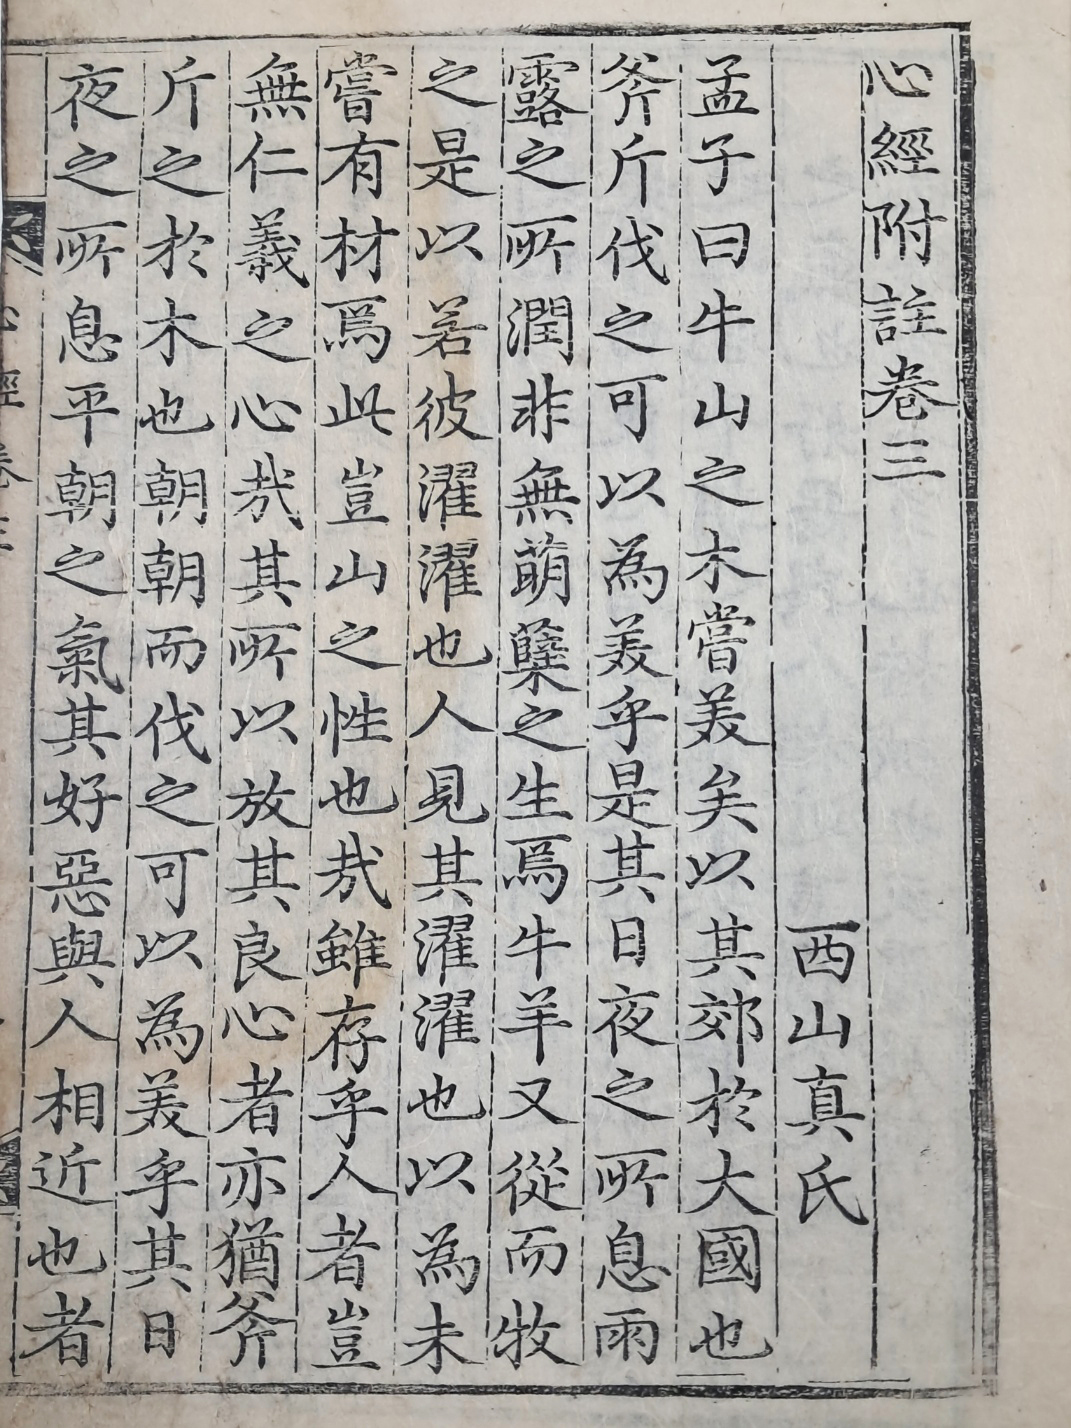 心經附註卷三
西山真氏
孟子曰牛山之木嘗美矣以其郊於大國也
斧斤伐之可以為美乎是其日夜之所息雨
露之所潤非無萌蘖之生焉牛羊又從而牧
之是以若彼濯濯也人見其濯濯也以為未
嘗有材焉此豈山之性也哉雖存乎人者豈
無仁義之心哉其所以放其良心者亦猶斧
斤之於木也朝朝而伐之可以為美乎其日
夜之所息平朝之氣其好惡與人相近也者
心經 卷三